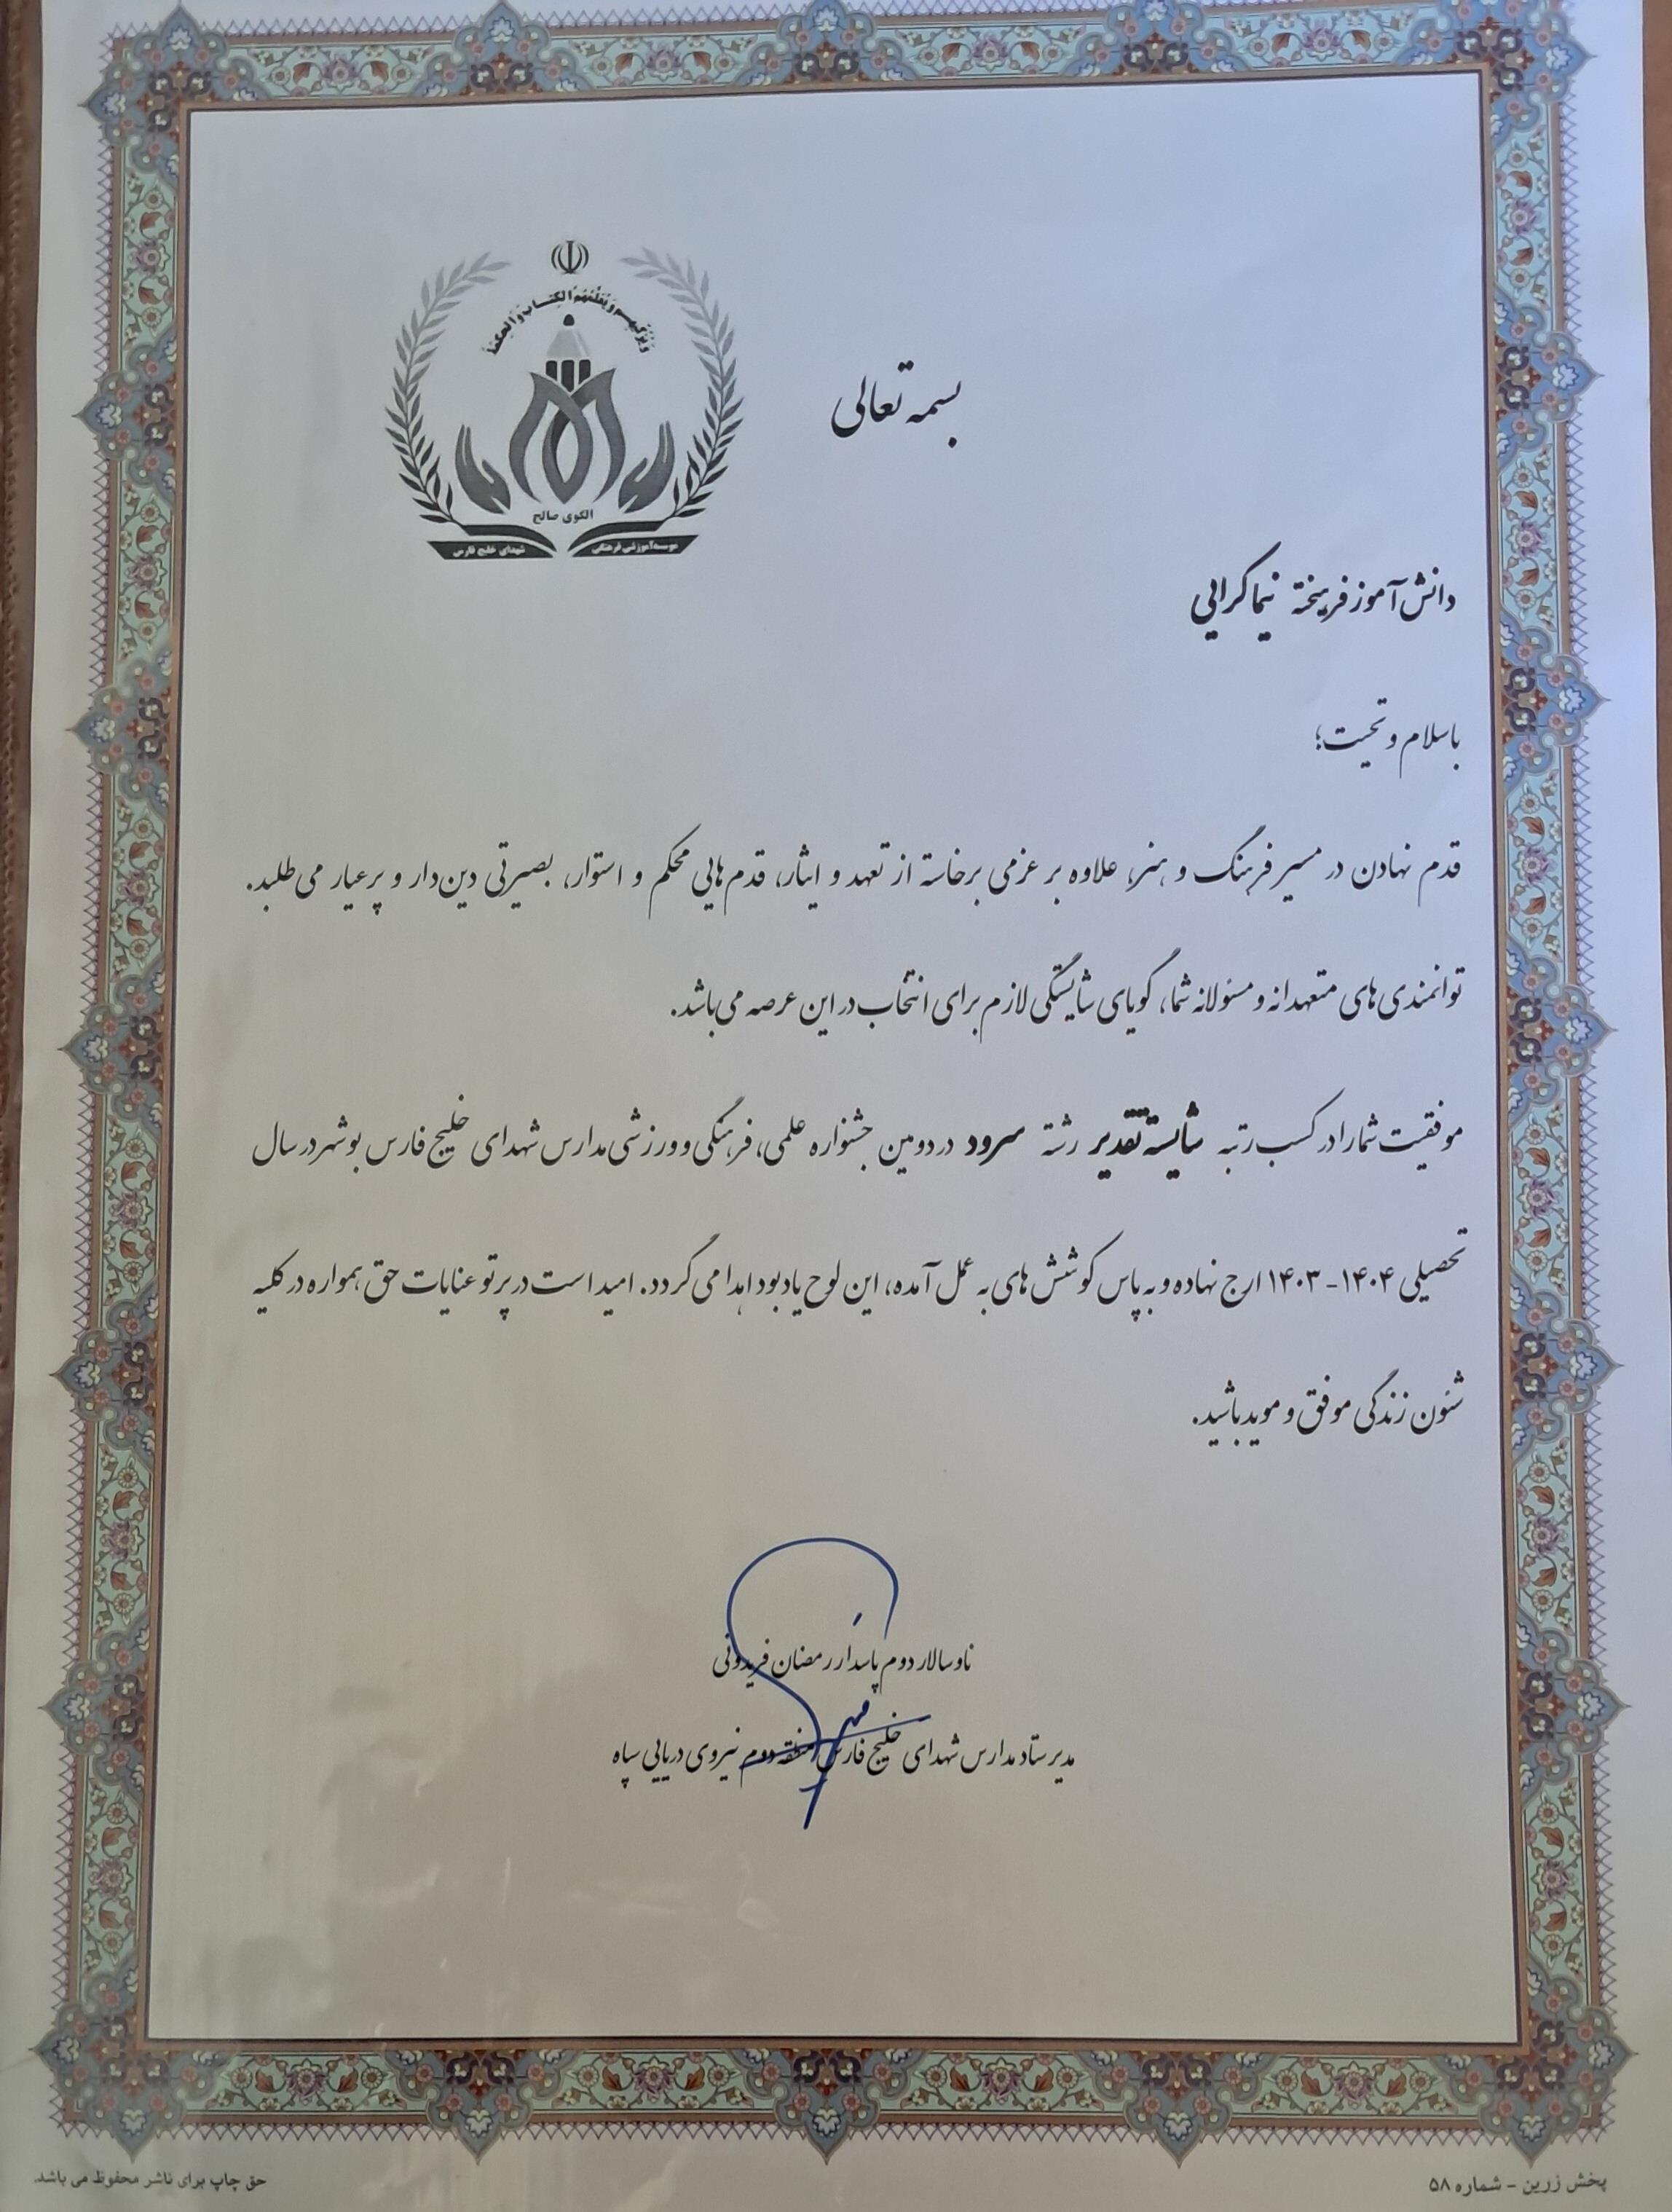 ویزکیهم ویعلمهم الکتاب والحکمة
بسمه تعالی
الگوی صالح
موسسه آموزشی فرهنگی شهدای خلیج فارس
دانش آموز فرهیخته نیما کرایی
با سلام و تحیت؛
قدم نهادن در مسیر فرهنگ و هنر، علاوه بر عزمی برخاسته از تعهد و ایثار، قدم هایی محکم و استوار، بصیرتی دین دار و پرعیار می طلبد.
توانمندی های متعهدانه و مسئولانه شما، گویای شایستگی لازم برای انتخاب در این عرصه می باشد.
موفقیت شما را در کسب رتبه شایسته تقدیر رشته سرود در دومین جشنواره علمی، فرهنگی و ورزشی مدارس شهدای خلیج فارس بوشهر در سال
تحصیلی ۱۴۰۴-۱۴۰۳ ارج نهاده و به پاس کوشش های به عمل آمده، این لوح یادبود اهدا می گردد. امید است در پرتو عنایات حق همواره در کلیه
شئون زندگی موفق و موید باشید.
ناوسالار دوم پاسدار رمضان فریدونی
مدیر ستاد مدارس شهدای خلیج فارس منطقه دوم نیروی دریایی سپاه
پخش زرین - شماره ۵۸
حق چاپ برای ناشر محفوظ می باشد.